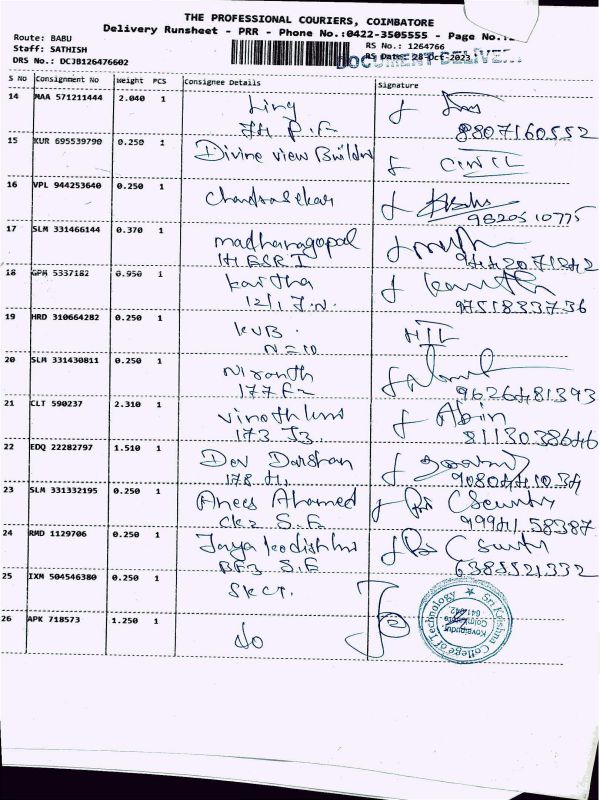 THE PROFESSIONAL COURIERS, COIMBATORE
Delivery Runsheet - PRR - Phone No.:0422-3505555 - Page No.:
Route: BABU
Staff: SATHISH
DRS No.: DCJB126476602
RS No.: 1264766
RS Date: 28-Oct-2023
DOCUMENT DELIVE
S No Consignment No Weight PCS Consignee Details Signature
14 MAA 571211444 2.040 1
8807160552
15 KUR 695539790 0.250 1 Divine view Buildrs
16 VPL 944253640 0.250 1 Chandrasekar
9620510775
17 SLM 331466144 0.370 1 madhanagopal
9442071242
18 GPM 5337182 0.950 1 kartha
12/1 J.N.
9751833736
19 HRD 310664282 0.250 1 KVB.
N=10
20 SLM 331430811 0.250 1 Niranth
177 F2 9626481393
21 CLT 590237 2.310 1 Abin
173 J3. 8113038646
22 EDQ 22282797 1.510 1 Dev Darshan
178 H, 9080441034
23 SLM 331332195 0.250 1 Anees Ahamed Security
CK2 S.F 9994158387
24 RMD 1129706 0.250 1
BF3 S.F 6385521332
25 IXM 504546380 0.250 1 SKCT.
26 APK 718573 1.250 1 do
Sri Krishna College of Technology
Kovaipudur
Coimbatore
641 042